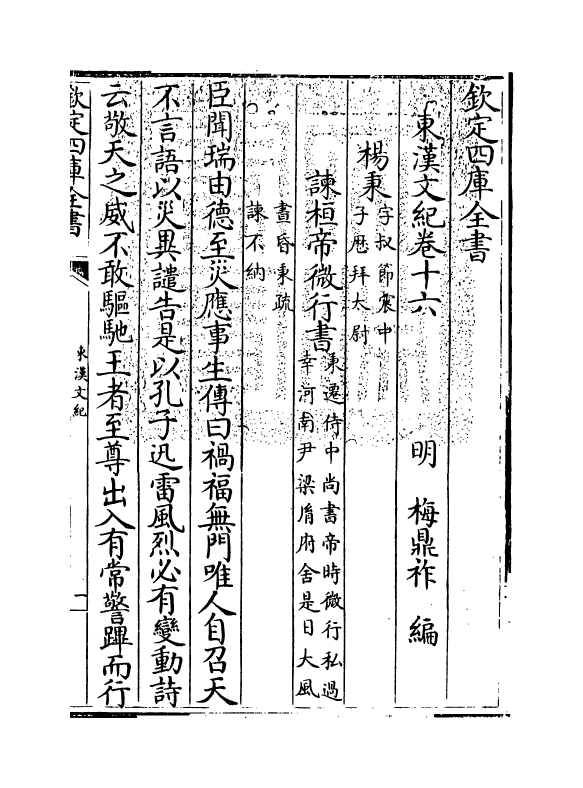 欽定四庫全書
東漢文紀卷十六
明 梅鼎祚 編
楊秉字叔節震中
子歴拜太尉
諫桓帝微行書秉遷侍中尚書帝時微行私過
幸河南尹梁𦙍府舍是日大風
晝昏秉疏
諫不納
臣聞瑞由德至災應事生傳曰禍福無門唯人自召天
不言語以災異譴告是以孔子迅雷風烈必有變動詩
云敬天之威不敢驅馳王者至尊出入有常警蹕而行
欽定四庫全書
東漢文紀
一